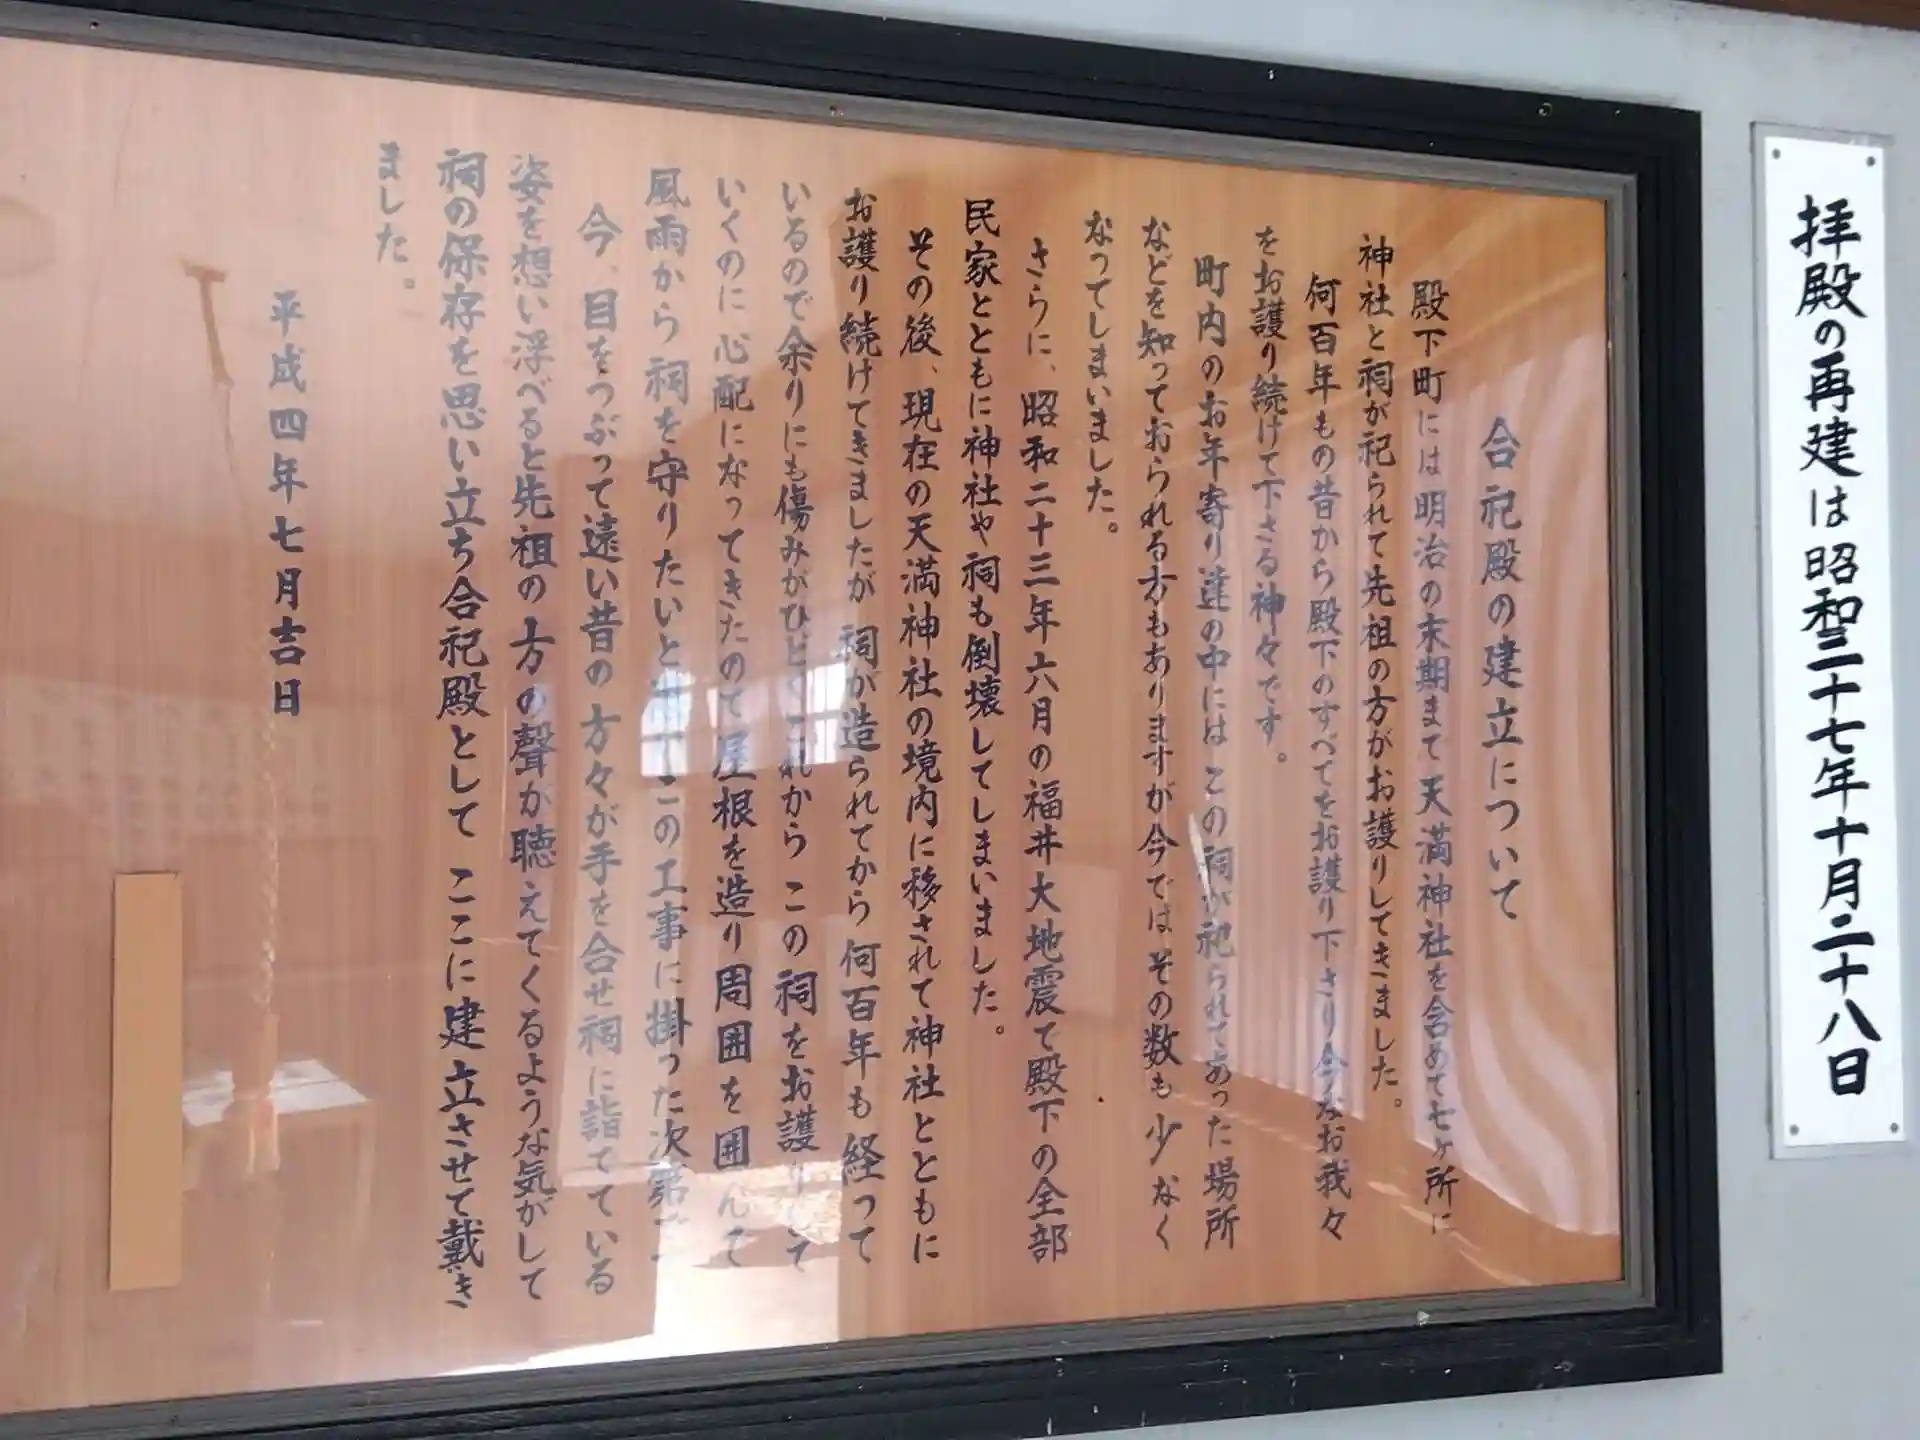 拝殿の再建は昭和二十七年十月二十八日
合祀殿の建立について
殿下町には明治の末期まで天満神社を含めて七ヶ所に
神社と祠が祀られて先祖の方がお護りしてきました。
何百年もの昔から殿下のすべてをお護り下さり今なお我々
をお護り続けて下さる神々です。
町内のお年寄り達の中にはこの祠が祀られてあった場所
などを知っておられる方もありますが今ではその数も少なく
なってしまいました。
さらに、昭和二十三年六月の福井大地震で殿下の全部
民家とともに神社や祠も倒壊してしまいました。
その後、現在の天満神社の境内に移されて神社とともに
お護り続けてきましたが 祠が造られてから何百年も経って
いるので余りにも傷みがひどくこれから この祠をお護りして
いくのに心配になってきたので屋根を造り周囲を囲んで
風雨から祠を守りたいと この工事に掛った次第で
今、目をつぶって遠い昔の方々が手を合せ祠に詣でている
姿を想い浮べると先祖の方の聲が聴えてくるような気がして
祠の保存を思い立ち合祀殿として ここに建立させて戴き
ました。
平成四年七月吉日